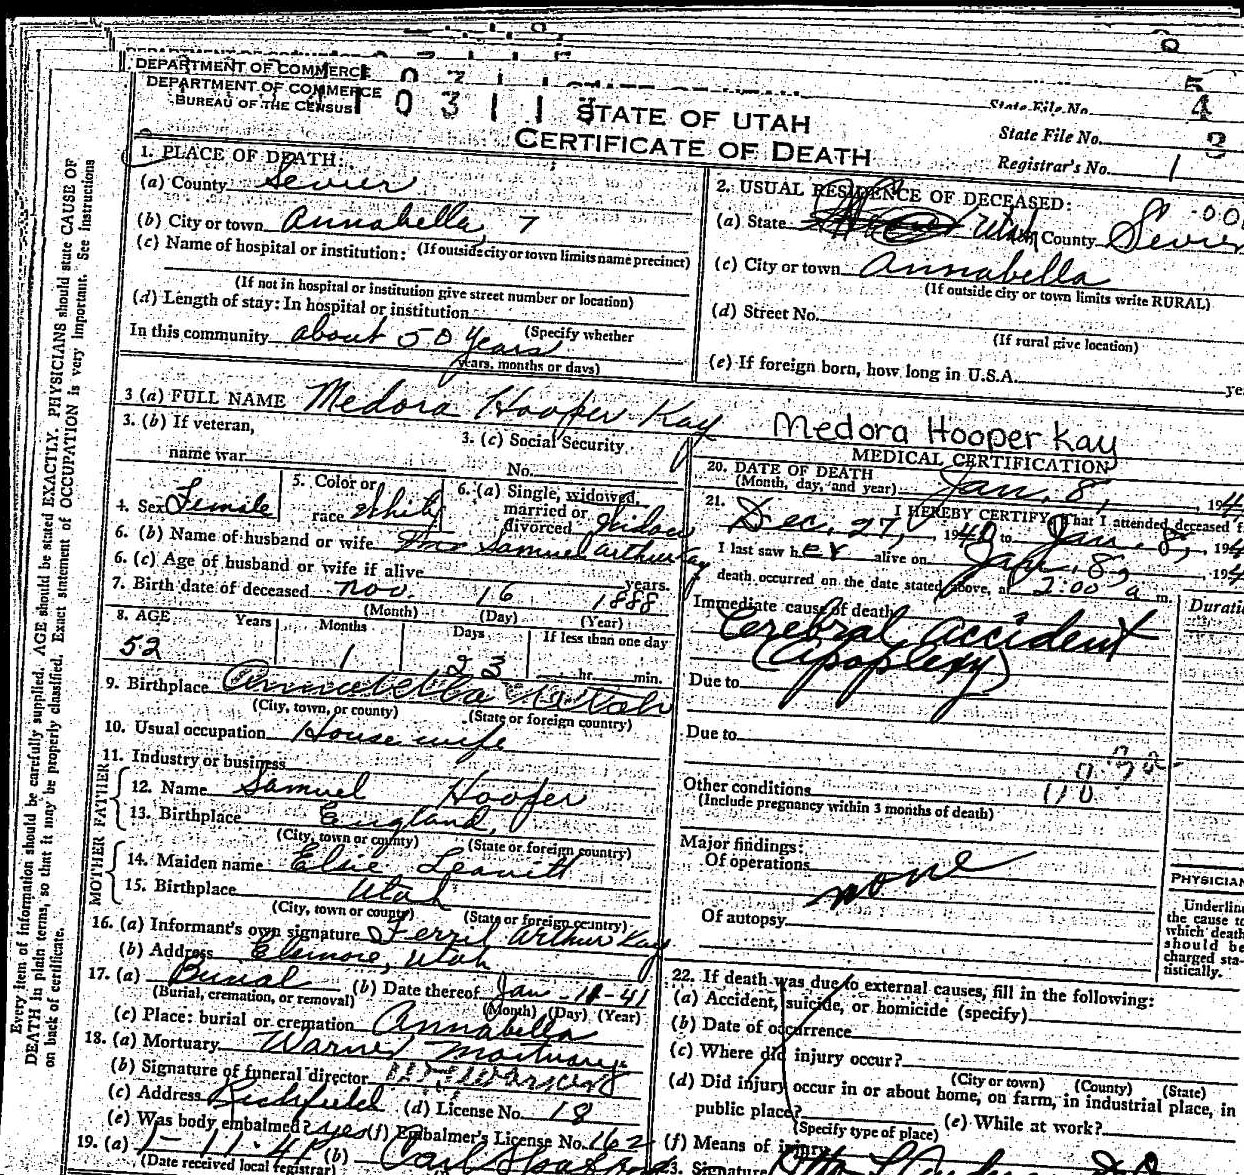 DEPARTMENT OF COMMERCE
DEPARTMENT OF COMMERCE
BUREAU OF THE CENSUS
STATE OF UTAH
CERTIFICATE OF DEATH
State File No.
State File No.
Registrar's No. 1
Every item of information should be carefully supplied. AGE should be stated EXACTLY. PHYSICIANS should state CAUSE OF
DEATH in plain terms, so that it may be properly classified. Exact statement of OCCUPATION is very important. See instructions
on back of certificate.
1. PLACE OF DEATH:
(a) County Sevier
(b) City or town Annabella, 7
(c) Name of hospital or institution: (If outside city or town limits name precinct)
(If not in hospital or institution give street number or location)
(d) Length of stay: In hospital or institution
(Specify whether
In this community about 50 years
years, months or days)
2. USUAL RESIDENCE OF DECEASED:
(a) State Utah County Sevier
(c) City or town Annabella
(If outside city or town limits write RURAL)
(d) Street No.
(If rural give location)
(e) If foreign born, how long in U.S.A.
3 (a) FULL NAME Medora Hooper Kay
Medora Hooper Kay
3. (b) If veteran,
name war
3. (c) Social Security
No.
4. Sex Female
5. Color or
race White
6. (a) Single, widowed,
married or
divorced Widow
6. (b) Name of husband or wife Samuel Arthur Kay
6. (c) Age of husband or wife if alive years.
7. Birth date of deceased Nov. 16 1888
(Month) (Day) (Year)
8. AGE Years Months Days If less than one day
52 1 23 hr. min.
9. Birthplace Annabella Utah
(City, town, or county) (State or foreign country)
10. Usual occupation House wife
11. Industry or business
FATHER
12. Name Samuel Hooper
13. Birthplace England,
(City, town or county) (State or foreign country)
MOTHER
14. Maiden name Elsie Leavitt
15. Birthplace Utah
(City, town or county) (State or foreign country)
16. (a) Informant's own signature Ferril Arthur Kay
(b) Address Elsinore, Utah
17. (a) Burial (b) Date thereof Jan - 11 - 41
(Burial, cremation, or removal) (Month) (Day) (Year)
(c) Place: burial or cremation Annabella
18. (a) Mortuary Warner Mortuary
(b) Signature of funeral director
(c) Address Richfield (d) License No. 18
(e) Was body embalmed? yes (f) Embalmer's License No. 162
19. (a) 1-11-41 (b) Carl
(Date received local registrar)
MEDICAL CERTIFICATION
20. DATE OF DEATH
(Month, day, and year) Jan. 8, 194
21. I HEREBY CERTIFY, That I attended deceased f
Dec. 27, 1940 to Jan. 8, 194
I last saw her alive on Jan. 8, 194
death occurred on the date stated above, at 2:00 a m.
Immediate cause of death Duratio
Cerebral accident
(Apoplexy)
Due to
Due to
Other conditions
(Include pregnancy within 3 months of death)
Major findings:
Of operations none
Of autopsy
PHYSICIAN
Underline
the cause to
which death
should be
charged sta-
tistically.
22. If death was due to external causes, fill in the following:
(a) Accident, suicide, or homicide (specify)
(b) Date of occurrence
(c) Where did injury occur?
(City or town) (County) (State)
(d) Did injury occur in or about home, on farm, in industrial place, in
public place? (e) While at work?
(Specify type of place)
(f) Means of injury
23. Signature